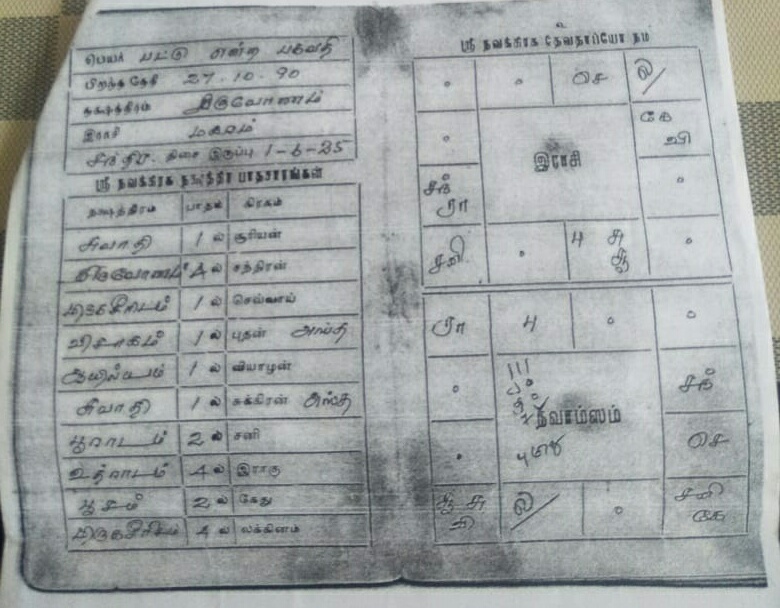 பெயர் பட்டு என்ற பகவதி
பிறந்த தேதி 27.10.90
நக்ஷத்திரம் திருவோணம்
இராசி மகரம்
சந்திர திசை இருப்பு 1-6-25
ஸ்ரீ நவக்கிரக நக்ஷத்திர பாதசாரங்கள்
நக்ஷத்திரம் பாதம் கிரகம்
சுவாதி 1 ல் சூரியன்
திருவோணம் 4 ல் சந்திரன்
மிருகசீரிடம் 1 ல் செவ்வாய்
விசாகம் 1 ல் புதன் அஸ்த
ஆயில்யம் 1 ல் வியாழன்
சுவாதி 1 ல் சுக்கிரன் அஸ்த
பூராடம் 2 ல் சனி
உத்ராடம் 4 ல் இராகு
பூசம் 2 ல் கேது
மிருகசீரிடம் 4 ல் லக்கினம்
ஸ்ரீ நவக்கிரக தேவதாப்யோ நம
செ ல/
கே
வி
இராசி
சந்
ரா
சனி பு சு
சூ
ரா பு
நவாம்ஸம்
சந்
செ
சூ சு
வி
ல/
சனி
கே